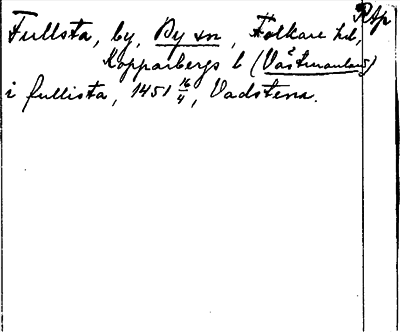 RAp
Fullsta, by, By sn, Folkare hd,
Kopparbergs l (Västmanland)
i fullista, 1451 16/4, Vadstena.